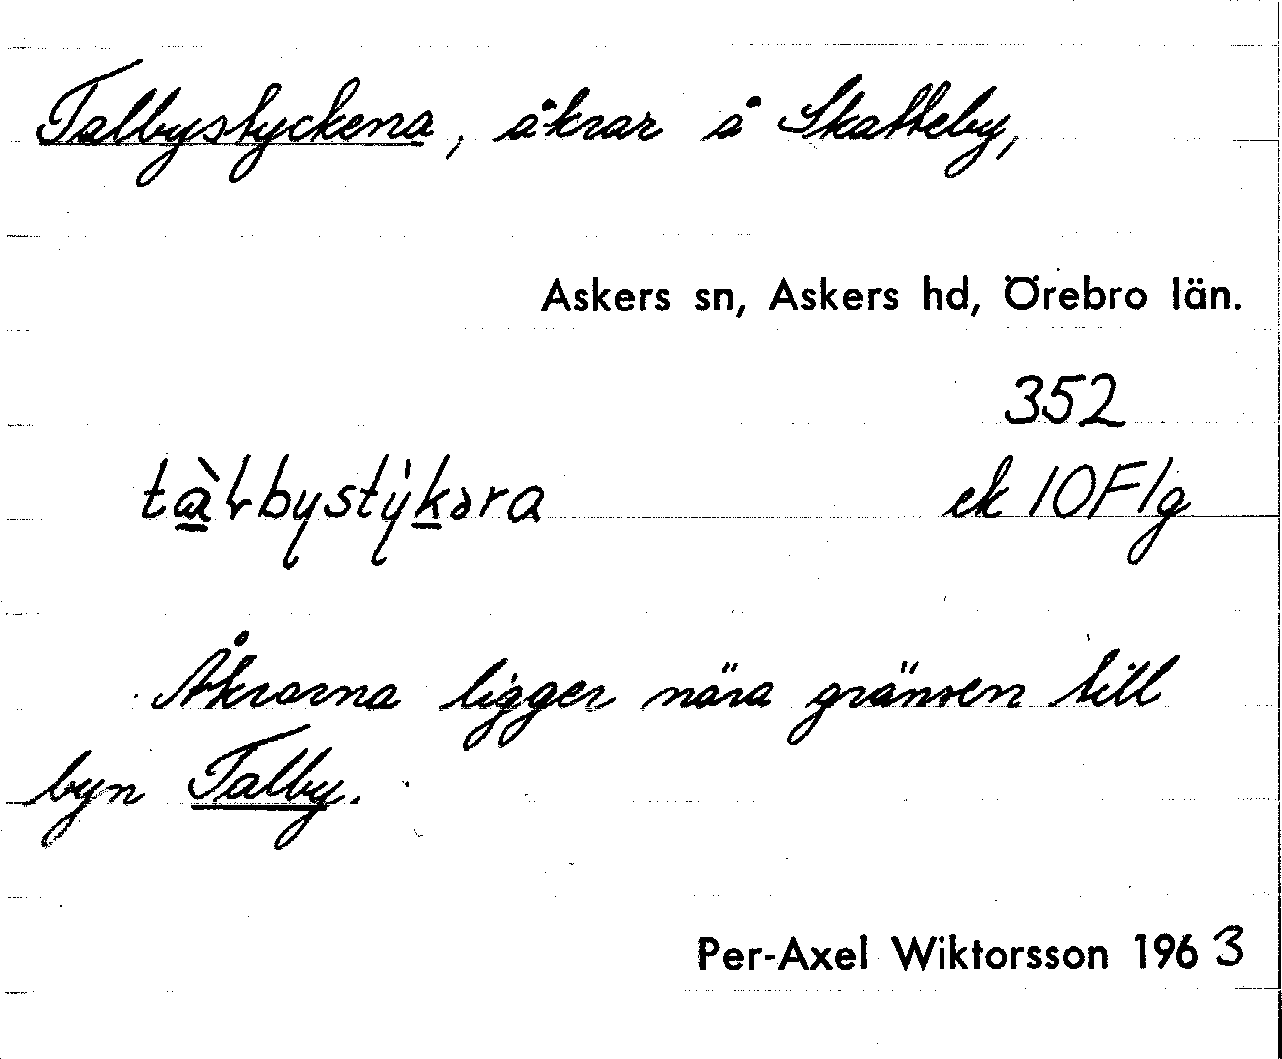 Talbystyckena, åkrar å Skatteby,
Askers sn, Askers hd, Örebro län.
352
tàlbystýkəra ek 10F1g
Åkrarna ligger nära gränsen till
byn Talby.
Per-Axel Wiktorsson 1963